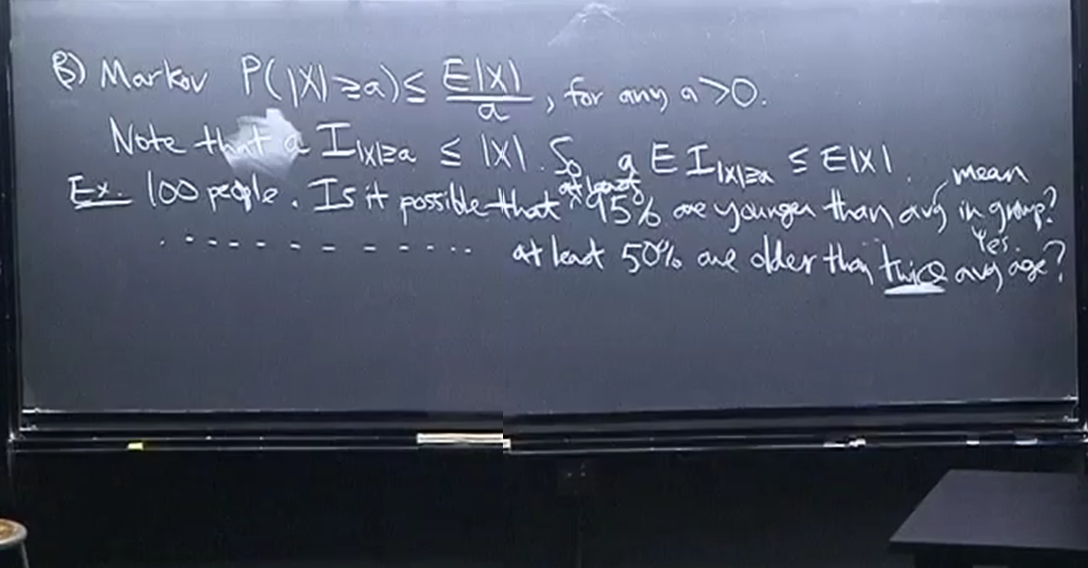 B) Markov P(|X| ≥ a) ≤ E|X|/a, for any a > 0.
Note that a I_{|X|≥a} ≤ |X|. So a E I_{|X|≥a} ≤ E|X|.
mean
Ex. 100 people. Is it possible that at least 95% are younger than avg in group?
Yes.
. - - - - - - - - . . . at least 50% are older than twice avg age?